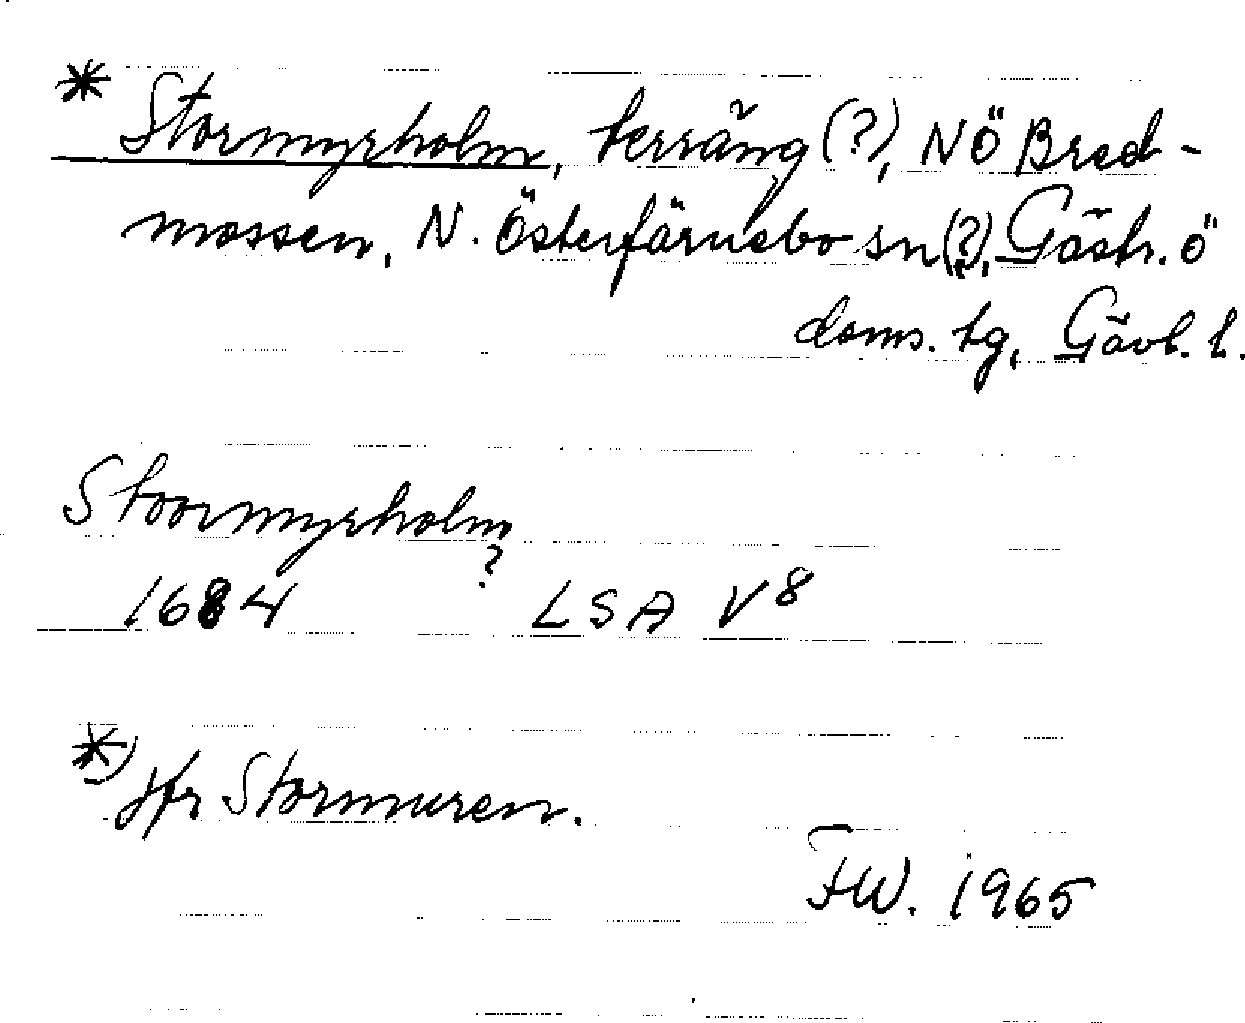 * Stormyrholm, terräng (?), NÖ Bred-
mossen, N. Österfärnebo sn (?), Gästr. ö
doms. tg, Gävl. l.
Stoormyrholm
?
1684 LSA V8
*) Jfr Stormuren.
FW. 1965